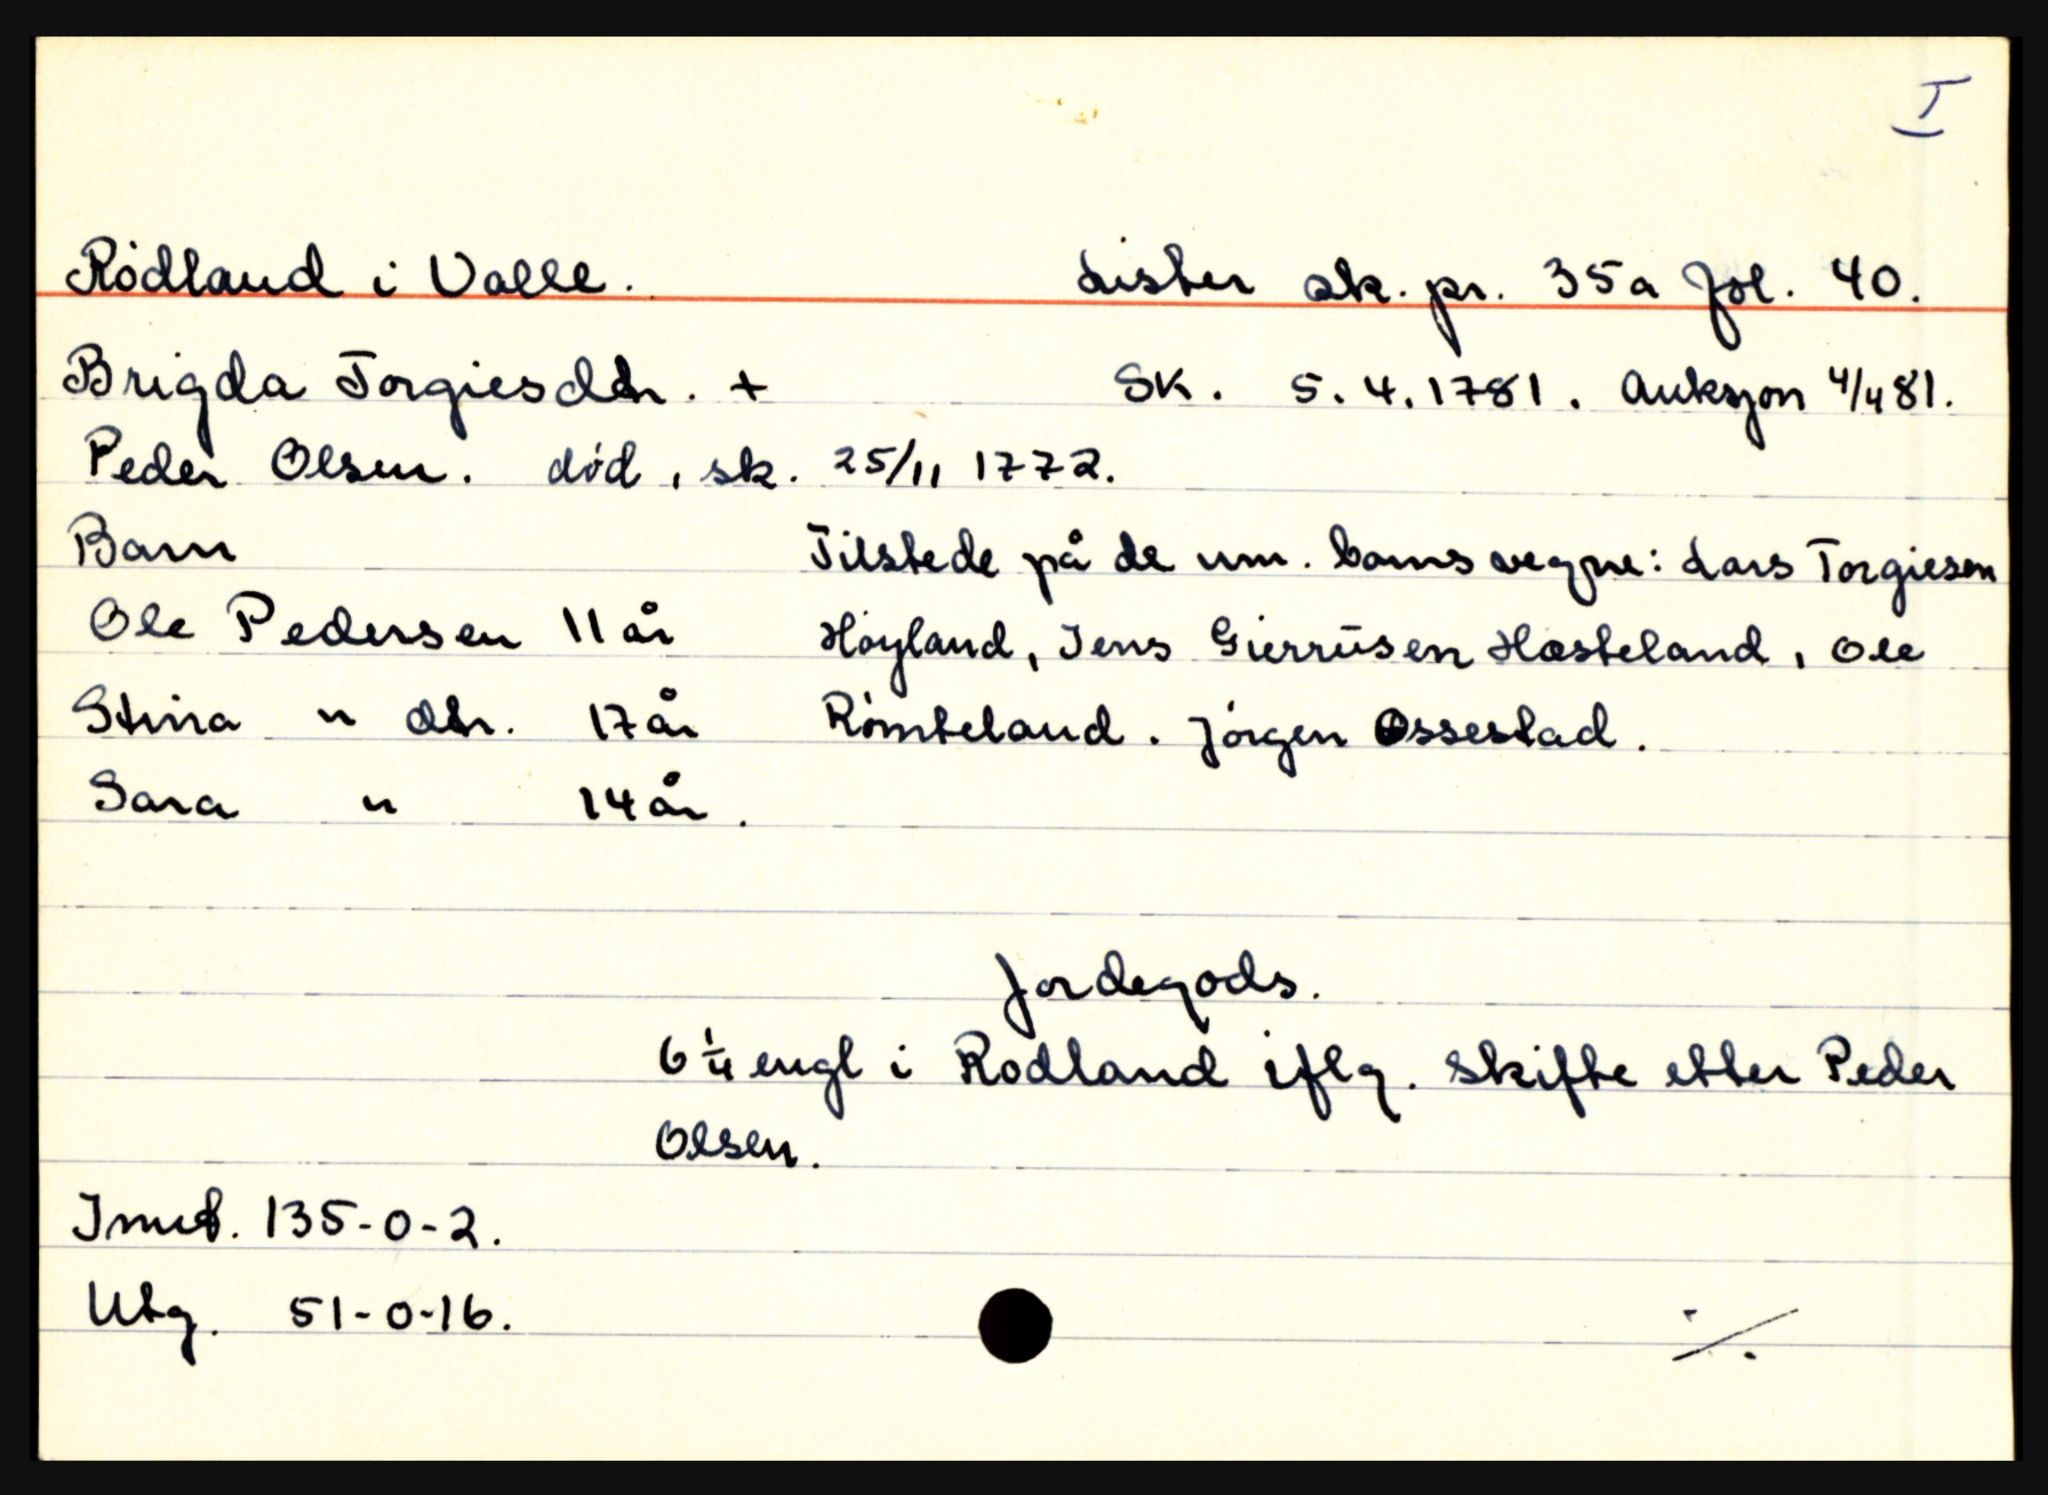 I
Rødland i Valle. Lister sk. pr. 35a fol. 40.
Brigda Torgiesdtr. + SK. 5.4.1781. Auksjon 4/4 81.
Peder Olsen. død, sk. 25/11 1772.
Barn Tilstede på de um. barns vegne: Lars Torgiesen
Ole Pedersen 11 år Høyland, Jens Gierrūsen Hæsteland, Ole
Stina " dtr. 17 år Rømteland. Jørgen Ossestad.
Sara " 14 år.
Jordegods.
6 1/4 engl i Rødland iflg. skifte etter Peder
Olsen.
Innt. 135-0-2.
Utg. 51-0-16.
./.